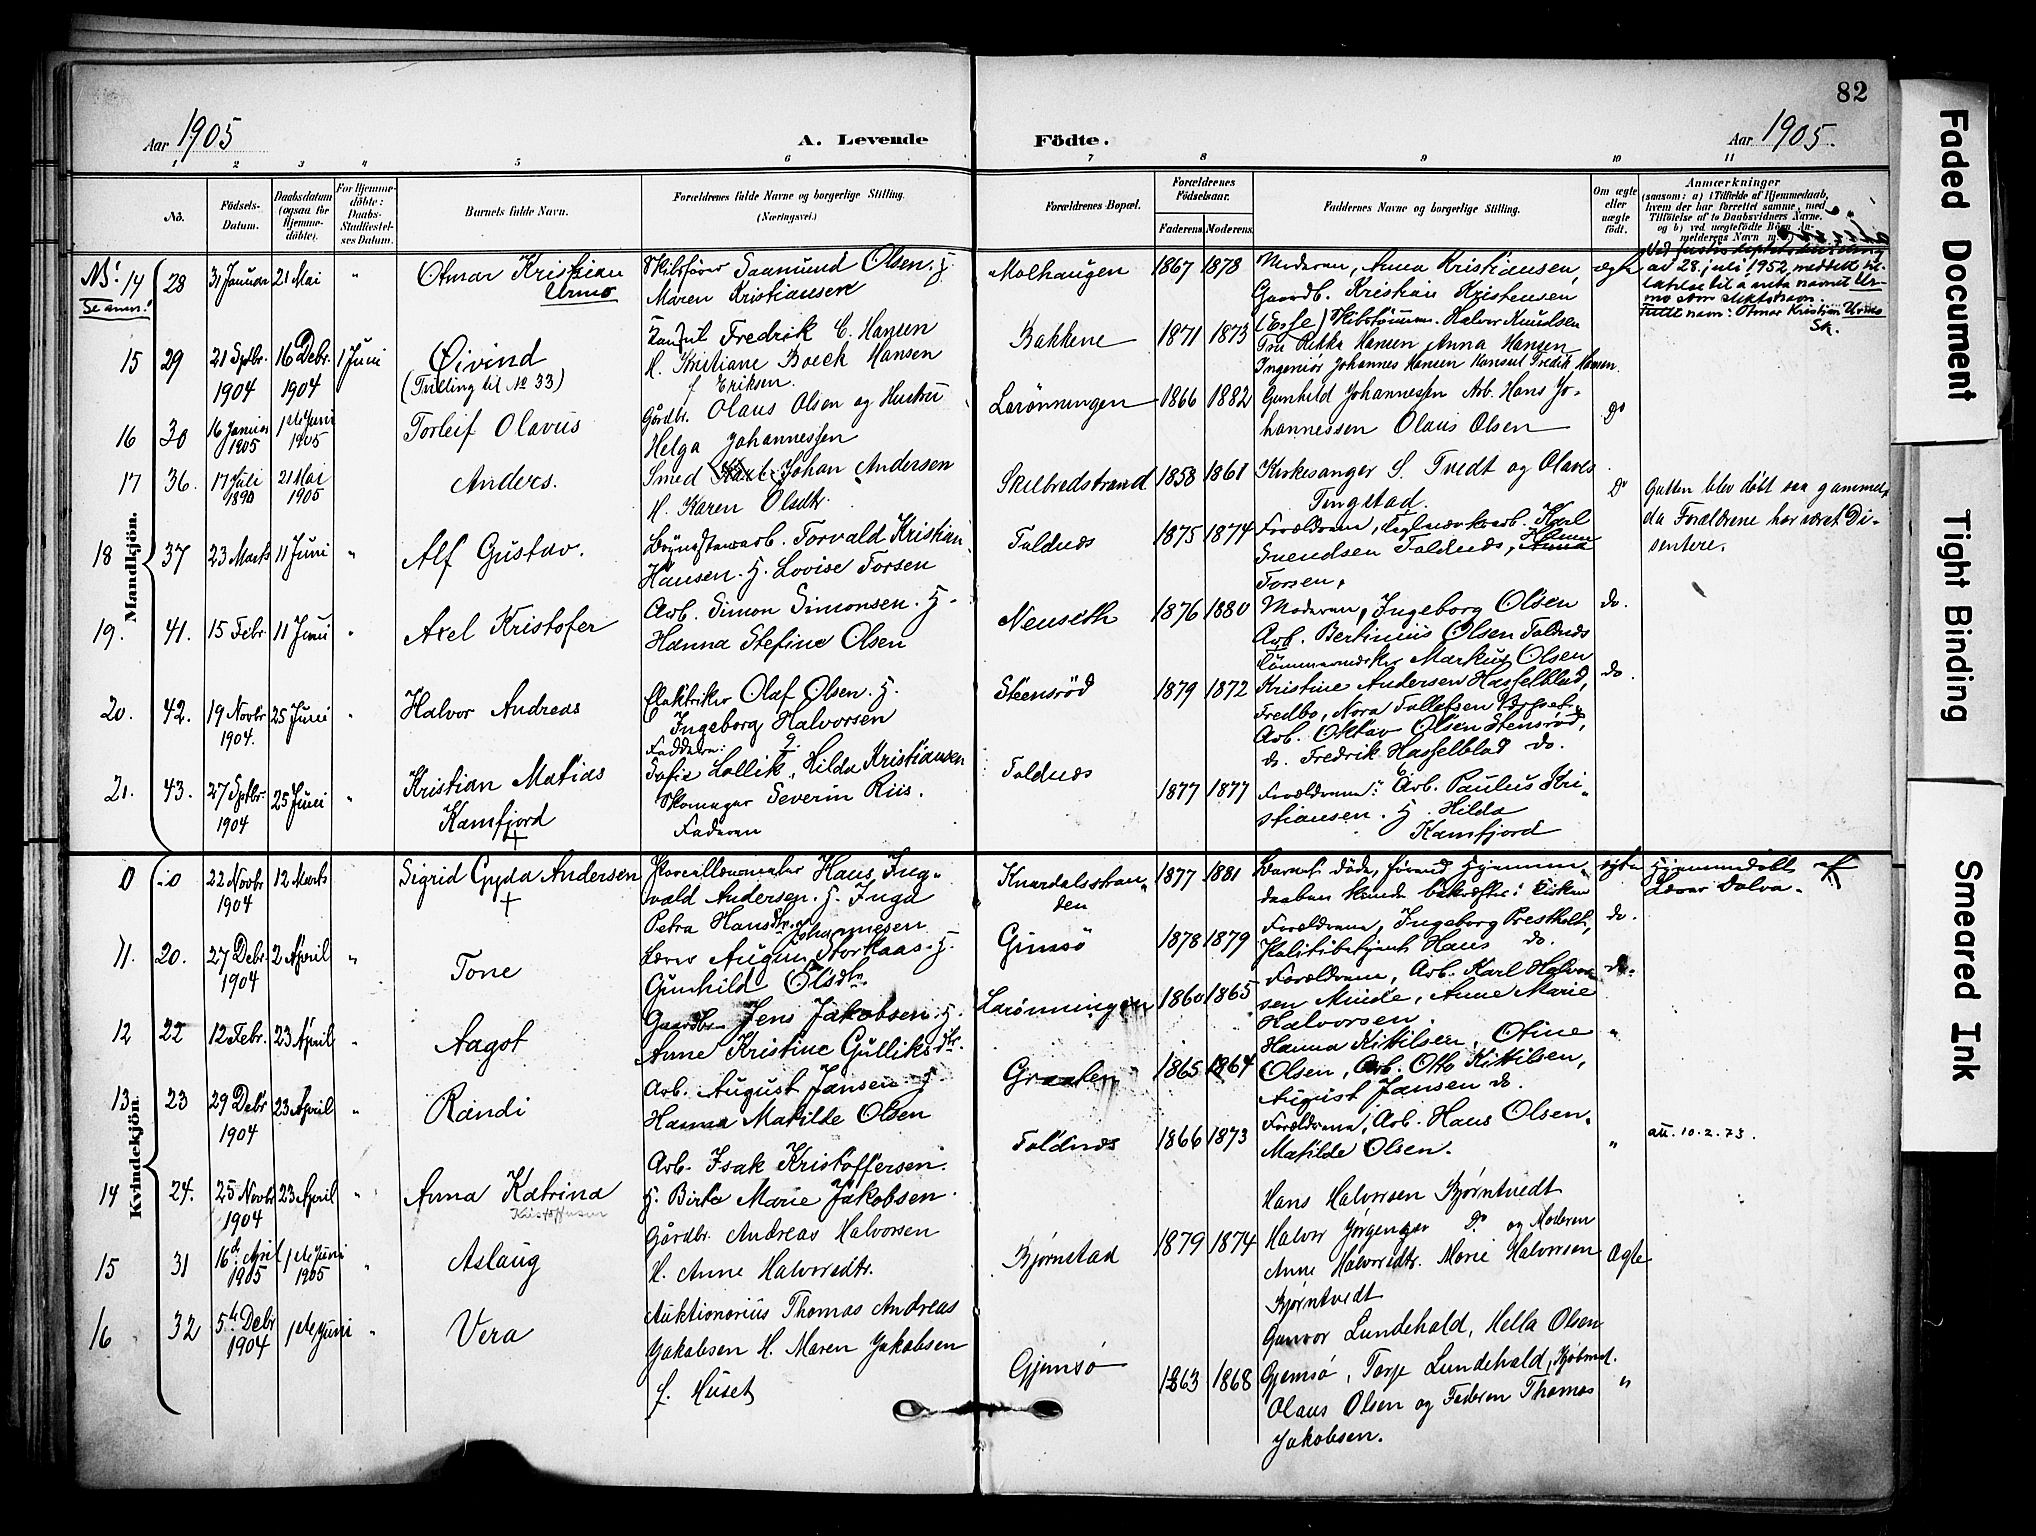 82
Aar 1905
A. Levende
Födte.
Aar 1905.
1 2 3 4 5 6 7 8 9 10 11
No.
Födsels-Datum.
Daabsdatum (ogsaa for Hjemme-döbte).
For Hjemme-döbte: Daabs-Stadfæstel-ses Datum.
Barnets fulde Navn.
Forældrenes fulde Navne og borgerlige Stilling. (Næringsvei.)
Forældrenes Bopæl.
Forældrenes Födselsaar.
Faderens. Moderens.
Faddernes Navne og borgerlige Stilling.
Om ægte eller uægte födt.
Anmærkninger
(saasom: a) i Tilfælde af Hjemmedaab, hvem der har forrettet samme, med Tilföielse af to Daabsvidners Navne,
Mandkjön.
N.B! 14 28 31 Januar 21 Mai " Otmar Kristian Urmo
Se anm!
Skibsfører Saamund Olsen. H.
Maren Kristiansen
Molhaugen 1867 1878
Moderen, Anna Kristiansen,
Gaardb. Kristian Kristensen
ægte
av 28. juli 1952, meddelt til-
latelse til å anta navnet Ur-
mo som slektsnavn.
Fullt navn: Otmar Kristian Urmo
Sk.
15 29 21 Septbr. 1904 16 Debr. 1904 1 Juni Øivind
(Tvilling til No 33)
Konsul Fredrik C. Hansen
H. Kristiane Boeck Hansen
f. Eriksen.
Bakkene 1871 1873
Skibstømmerm. Halvor Knudsen
Hansen Anna Hansen
Ingeniør Johannes Hansen Konsul Fredik Hansen.
16 30 16 Januar 1905 1ste Juni 1905 Torleif Olavus
Gårdbr. Olaus Olsen og Hustru
Helga Johannessen
Larønningen 1866 1882
Gunhild Johannessen Arb. Hans Jo-
hannessen Olaus Olsen
do
17 36. 17 Juli 1890 21 Mai 1905 Anders.
Smed Karl Johan Andersen
H. Karen Olsdtr.
Skilbredstrand 1858 1861
Kirkesanger S. Tvedt og Olaves
Tingstad.
Do
Gutten blev døbt saa gammel,
da Forældrene har været Di-
sentere.
18 37 23 Marts 11 Juni " Alf Gustav.
Torvald Kristian
Hansen. H. Lovise Torsen
Foldnes 1875 1874
Forældrene, Teglværksarb. Karl
Svendsen Foldnes,
Torsen,
19. 41. 15 Febr. 11 Juni " Axel Kristofer
Arb. Simon Simonsen. H.
Hanna Stefine Olsen
Nenseth 1876 1880
Moderen, Ingeborg Olsen
Arb. Bertinius Olsen Foldnes
Tømmermerker Markus Olsen
do.
20. 42. 19 Novbr 1904. 25 Juni " Halvor Andreas
Elektriker Olaf Olsen. H.
Ingeborg Halvorsen
Steensrød 1879 1872
Kristine Andersen Hasselblad,
Fredbo, Nora Tollefsen
Arb. Oktav Olsen Stensrød,
do. Fredrik Hasselblad do.
do.
21. 43. 27 Septbr. 1904 25 Juni " Kristian Matias
Kamfjord
+
Faddere:
Sofie Lollik, Hilda Kristiansen
Skomager Severin Riis.
Faderen
Foldnes 1877 1877
Forældrene: Arb. Paulus Kri-
stiansen. H. Hilda
Kamfjord
Kvindekjön.
0 0 22 Novbr 1904 12 Marts Sigrid Gyda Andersen
+
Porcellænsmaler Hans Ing-
vald Andersen. H. Inga
Petra Hansdtr.
Knardalsstran-
den 1877 1881
Barnet døde, førend Hjemme-
daaben kunde bekræftes i Kirken
ægte
Hjemmedøbt af
Lærer Dalva.
11. 20. 27 Debr. 1904 2 April " Tone
Lærer Augun Storkaas. H.
Gunhild Olsdtr.
Gimsø 1878 1879
Forældrene, Ingeborg Prestholt,
Politibetjent Hans do.
do.
12 22 12 Febr. 23 April " Aagot
Gaardbr. Jens Jakobsen. H.
Anne Kristine Gulliksdtr.
Larønningen 1860 1865
Forældrene, Arb. Karl Halvor-
sen Minde, Anne Marie
Halvorsen.
do.
13 23 29 Debr 1904 23 April " Randi
Arb. August Jansen. H.
Hanna Matilde Olsen
Graaten 1865 1864
Hanna Kittilsen, Otine
Olsen, Arb. Otto Kittilsen,
August Jansen do.
"
14 24. 25 Novbr 1904 23 April " Anna Katrina
Kristoffersen
Arb. Isak Kristoffersen.
H. Birte Marie Jakobsen.
Foldnes 1866 1873
Forældrene, Arb. Hans Olsen.
Matilde Olsen.
"
att. 10.2.73.
15 31 16d April 1905 1ste Juni 1905 " Aslaug
Gårdbr. Andreas Halvorsen
H. Anne Halvorsdtr.
Bjørnstad 1879 1874
Hans Halvorsen Bjørntvedt
Halvor Jørgensen Do og Moderen
Anne Halvorsdtr. Marie Halvorsen
Bjørntvedt
Ægte
16 32 5te Debr 1904 1ste Juni " Vera
Auktionarius Thomas Andreas
Jakobsen H. Maren Jakobsen
f. Huset
Gjemsø 1863 1868
Gunvor Lundehald, Hella Olsen
Gjemsø, Torje Lundehald, Kjøbmd.
Olaus Olsen og Faderen Thomas
Jakobsen.
"
Faded Document
Tight Binding
Smeared Ink